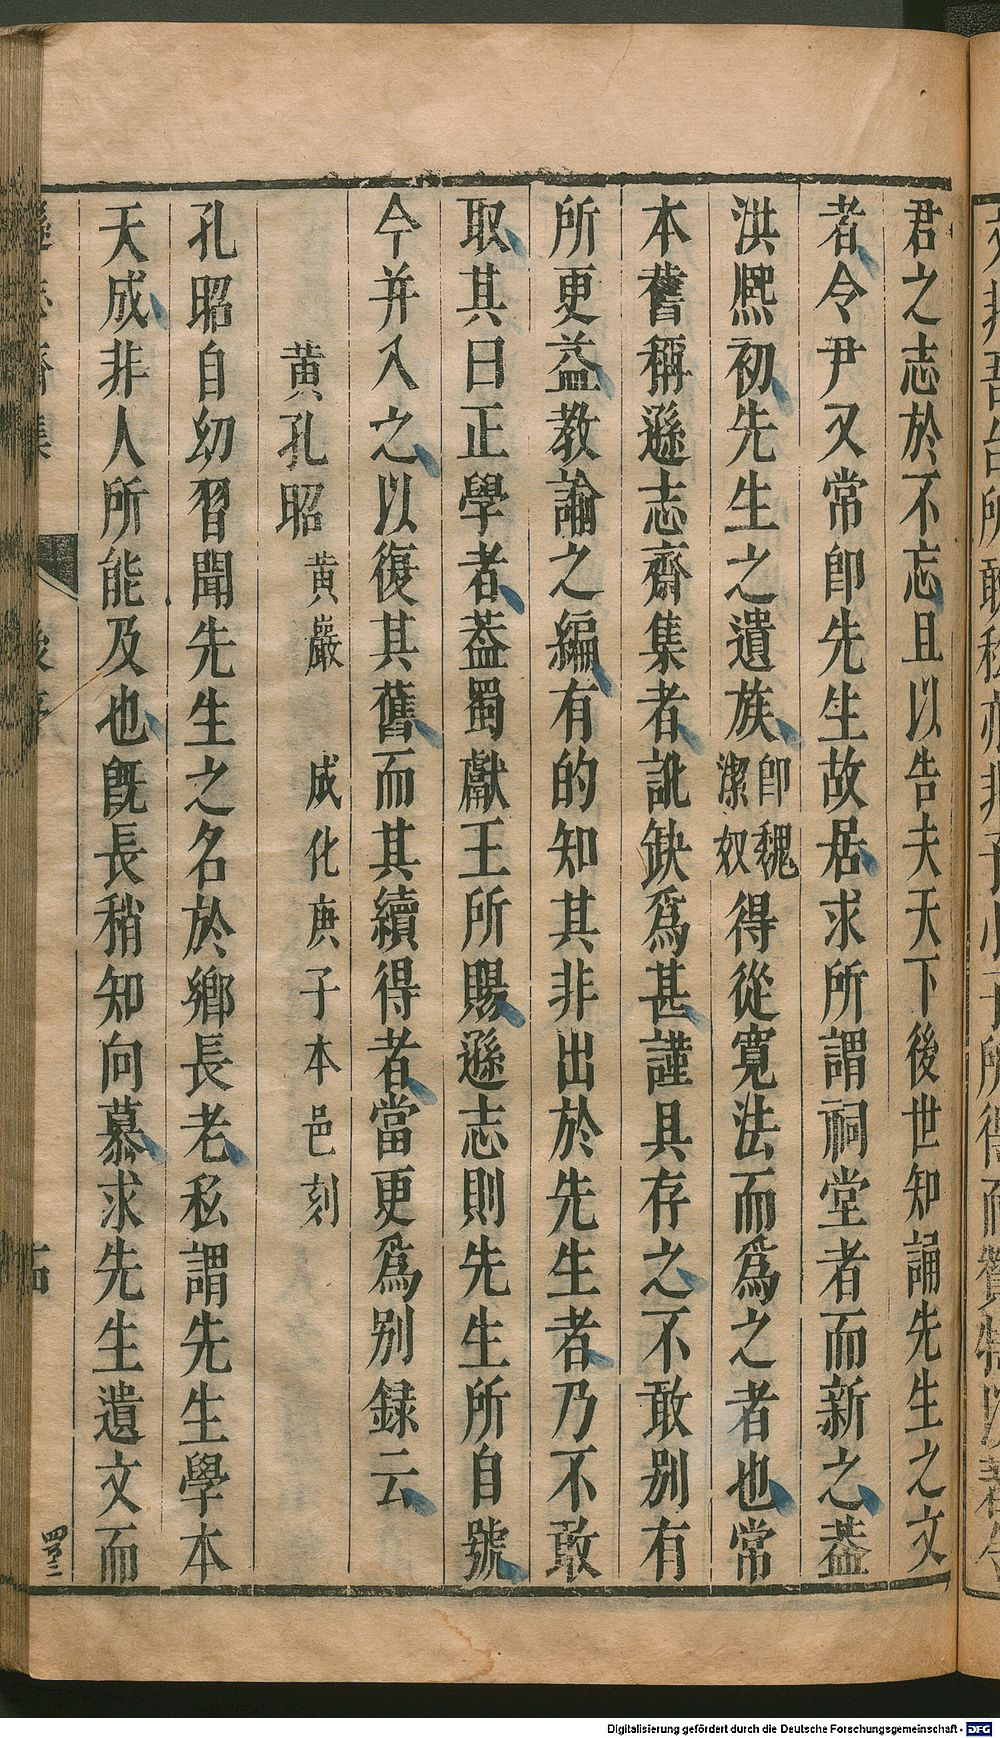 君之志於不忘且以告夫天下後世知誦先生之文
者令尹又常即先生故居求所謂祠堂者而新之葢
洪熈初先生之遺族即魏潔奴得從寛法而爲之者也常
本舊稱遜志齋集者訛缺爲甚謹具存之不敢别有
所更益教諭之編有的知其非出於先生者乃不敢
取其曰正學者葢蜀獻王所賜遜志則先生所自號
今并入之以復其舊而其續得者當更爲别録云
黄孔昭 黄巖 成化庚子本邑刻
孔昭自幼習聞先生之名於鄉長老私謂先生學本
天成非人所能及也旣長稍知向慕求先生遺文而
遜志齋集 後序
Digitalisierung gefördert durch die Deutsche Forschungsgemeinschaft - DFG